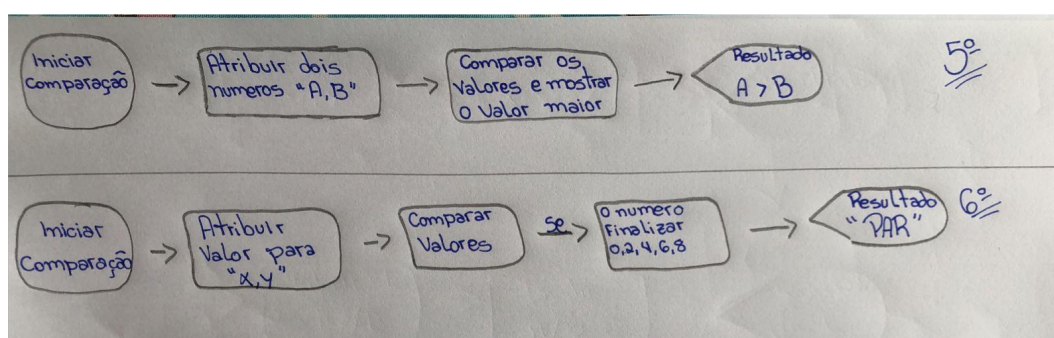 Iniciar
Comparação
Atribuir dois
numeros "A,B"
Comparar os
Valores e mostrar
o valor maior
Resultado
A > B
5º
Iniciar
Comparação
Atribuir
Valor para
"x,y"
Comparar
Valores
se
o numero
Finalizar
0,2,4,6,8
Resultado
"PAR"
6º